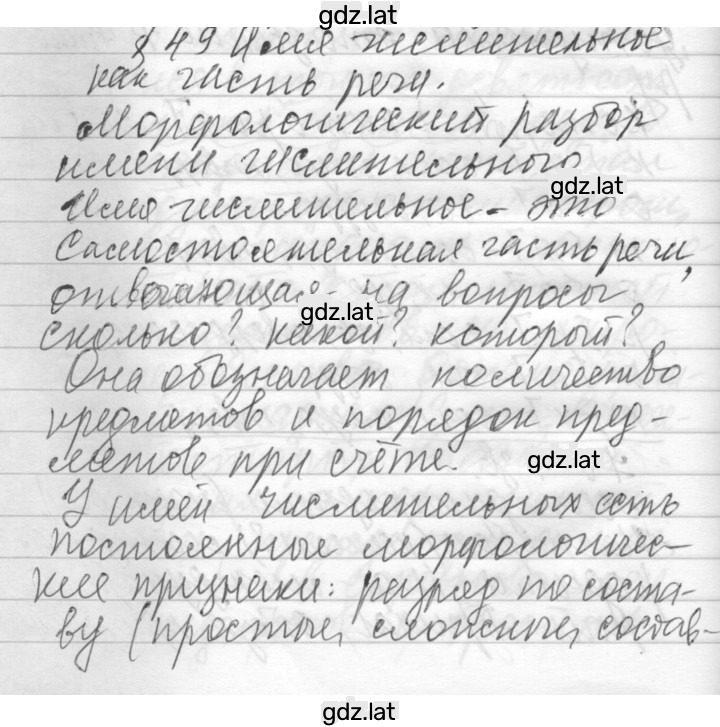 gdz.lat
§ 49 Имя числительное
как часть речи.
Морфологический разбор
имени числительного
gdz.lat
Имя числительное - это
Самостоятельная часть речи,
отвечающая на вопросы
gdz.lat
сколько? какой? который?
Она обозначает количество
предметов и порядок пред-
метов при счёте.
gdz.lat
У имён числительных есть
постоянные морфологичес-
кие признаки: разряд по соста-
ву (простые, сложные, состав-
gdz.lat